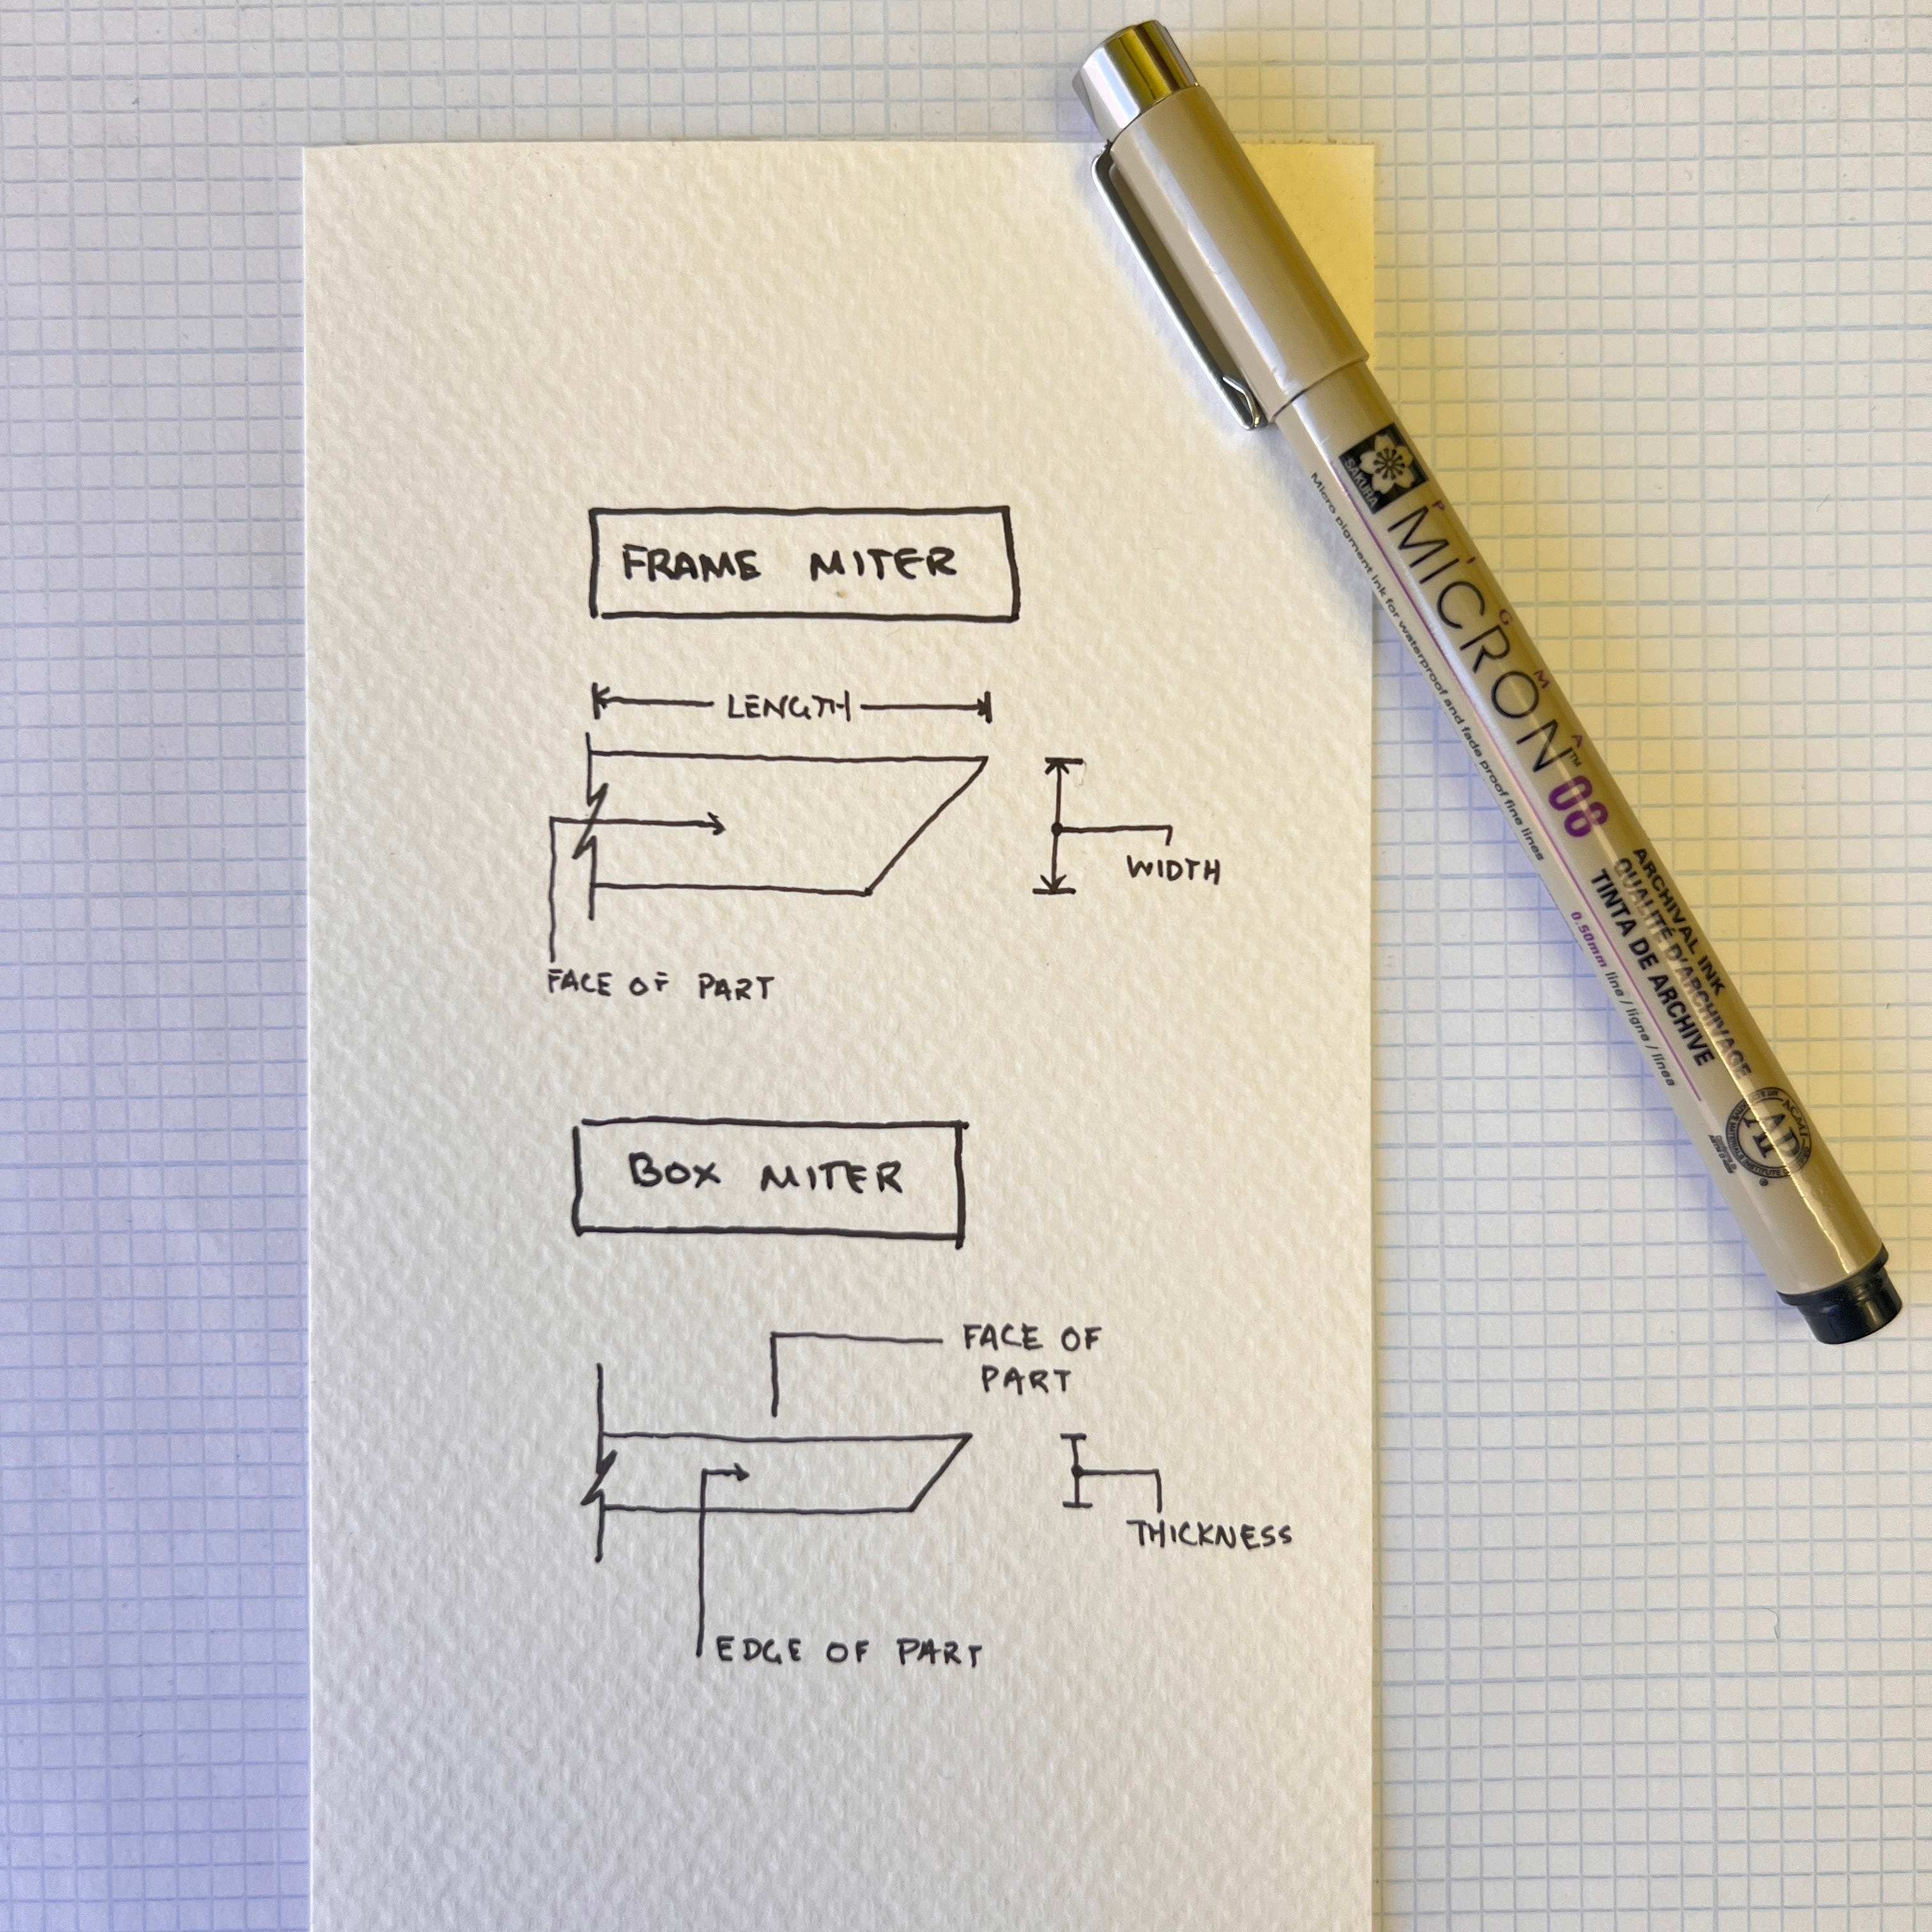 FRAME MITER
LENGTH
WIDTH
FACE OF PART
BOX MITER
FACE OF
PART
THICKNESS
EDGE OF PART
SAKURA
PIGMA
MICRON™ 08
Micro pigment ink for waterproof and fade proof fine lines
ARCHIVAL INK
QUALITÉ D'ARCHIVAGE
TINTA DE ARCHIVE
0.50mm line / ligne / línea
AP
®